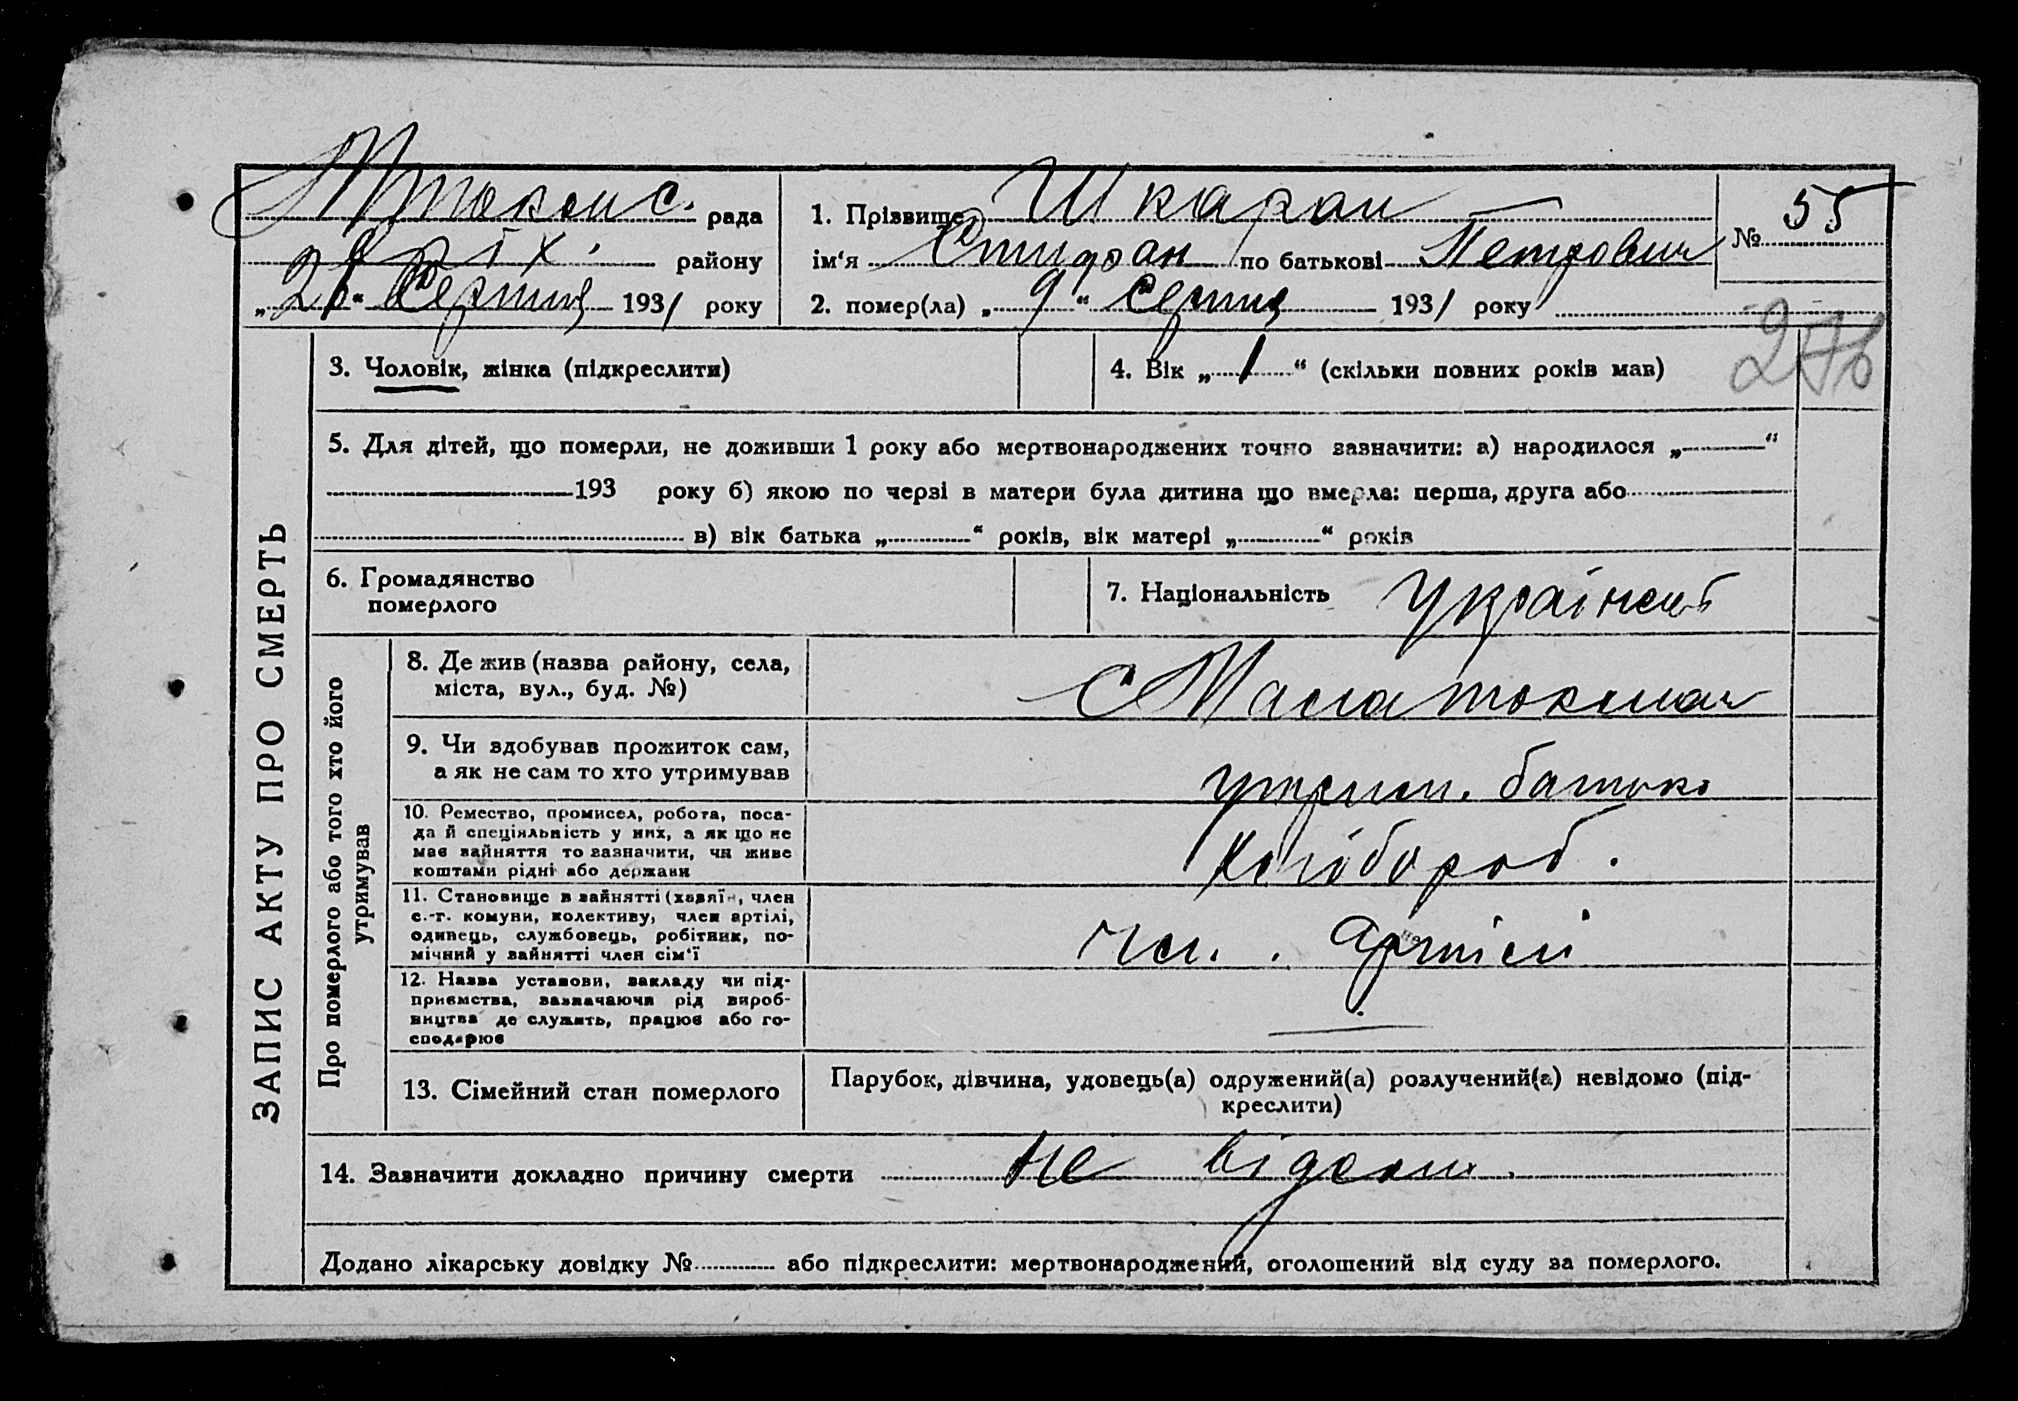 рада 1. Прізвище Шкаран № 55
району ім'я Спиидон по батькові Петрович
„26“ Серпня 1931 року 2. помер(ла) „9“ Серпня 1931 року
276
3. Чоловік, жінка (підкреслити) 4. Вік „1“ (скільки повних років мав)
5. Для дітей, що померли, не доживши 1 року або мертвонароджених точно зазначити: а) народилося „ “
193 року б) якою по черзі в матери була дитина що вмерла: перша, друга або
в) вік батька „ “ років, вік матері „ “ років
6. Громадянство
померлого
7. Національність Українец
ЗАПИС АКТУ ПРО СМЕРТЬ
Про померлого або того хто його
утримував
8. Де жив (назва району, села,
міста, вул., буд. №)
с
9. Чи здобував прожиток сам,
а як не сам то хто утримував
утрим. батько
10. Ремество, промисел, робота, поса-
да й спеціяльність у них, а як що не
має зайняття то зазначити, чи живе
коштами рідні або держави
Хлібороб.
11. Становище в зайнятті (хазяїн, член
с.-г. комуни, колективу, член артілі,
одинець, службовець, робітник, по-
мічний у зайнятті член сім'ї
чл. артілі
12. Назва установи, закладу чи під-
приємства, зазначаючи рід вироб-
ництва де служить, працює або го-
сподарює
13. Сімейний стан померлого
Парубок, дівчина, удовець(а) одружений(а) розлучений(а) невідомо (під-
креслити)
14. Зазначити докладно причину смерти не відом.
Додано лікарську довідку № або підкреслити: мертвонароджений, оголошений від суду за померлого.